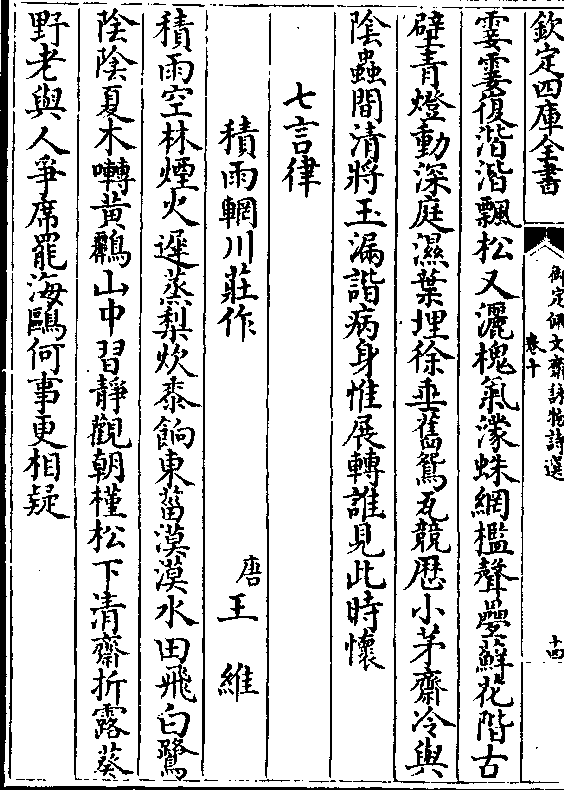 欽定四庫全書
御定佩文齋詠物詩選
卷十
十四
霎霎復湝湝飄松又灑槐氣濛蛛網檻聲疊蘚花階古
壁青燈動深庭濕葉埋徐垂舊鴛瓦競歴小茅齋冷與
陰蟲間清將玉漏諧病身惟展轉誰見此時懷
七言律
積雨輞川莊作 唐 王維
積雨空林煙火遲蒸梨炊黍餉東菑漠漠水田飛白鷺
陰陰夏木囀黃鸝山中習靜觀朝槿松下清齋折露葵
野老與人爭席罷海鷗何事更相疑